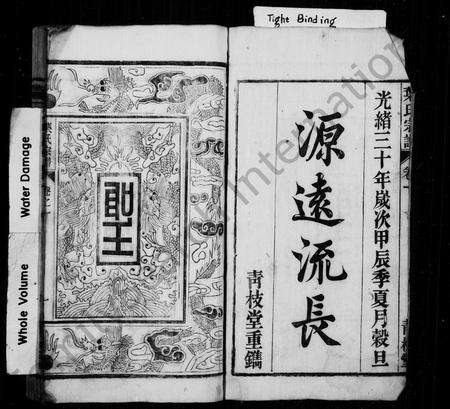 Tight Binding
Water Damage
Whole Volume
光緒三十年歲次甲辰季夏月穀旦
源遠流長
青枝堂重鐫
聖